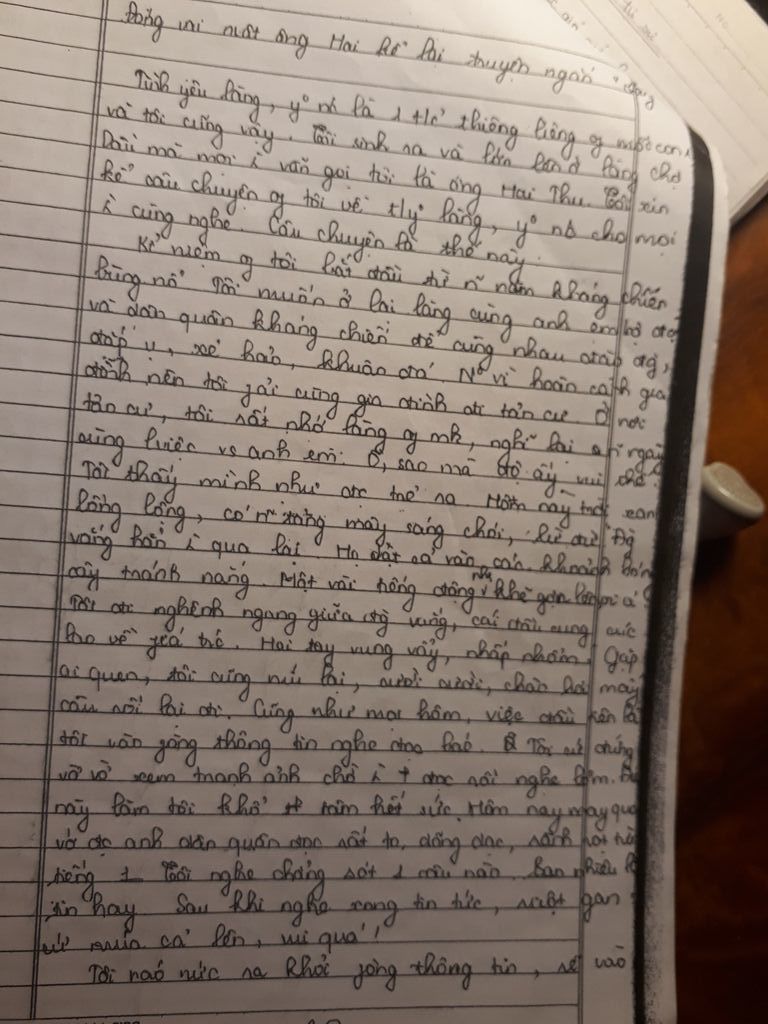 Đóng vai nhân ông Hai kể lại truyện ngắn "Làng
Tình yêu làng, yº nc là 1 t/cº thiêng liêng of mỗi con
và tôi cũng vậy. Tôi sinh ra và lớn lên ở làng chợ
Dầu mà mọi i vẫn gọi tôi là ông Hai Thu. Tôi xin
kể câu chuyện of tôi về t/yº làng, yº nc cho mọi
i cùng nghe. Câu chuyện là thế này.
Kỉ niệm of tôi bắt đầu từ ~ năm kháng chiến
bùng nổ. Tôi muốn ở lại làng cùng anh em
và dân quân kháng chiến để cùng nhau đắp
đắp ụ, xẻ hào, khuân đá. Nº vì hoàn cảnh gia
đình nên tôi fải cùng gia đình đi tản cư. Ở nơi
tản cư, tôi rất nhớ làng of mh, nghĩ lại ~ ngày
cùng lviệc vs anh em. Ồ, sao mà độ ấy vui thế.
Tôi thấy mình như đc trẻ ra. Hôm này trời xanh
lồng lộng, có ~ tảng mây sáng chói, lừ đừ. Đg
vắng hẳn i qua lại. Họ dạt cả vào các khoảnh bóng
cây tránh nắng. Một vài tiếng động nhẹ khẽ gợn
Tôi đi nghênh ngang giữa đg vắng, cái đầu cung cúc
lao về fía trc. Hai tay vung vẩy, nhấp nhổm, Gặp
ai quen, tôi cũng níu lại, cười cười, chào hỏi mấy
câu rồi lại đi. Cũng như mọi hôm, việc đầu tiên là
tôi vào fòng thông tin nghe đọc báo. Tôi cứ đứng
vờ vờ xem tranh ảnh chờ i + đọc rồi nghe lỏm.
này làm tôi khổ tâm hết sức. Hôm nay may quá
vớ đc anh dân quân đọc rất to, dõng dạc, rành rọt từ
tiếng 1. Tôi nghe chẳng sót 1 câu nào. Bao nhiêu là
tin hay. Sau khi nghe xong tin tức, ruột gan
cứ múa cả lên, vui quá!
Tôi náo nức ra khỏi fòng thông tin, rẽ vào